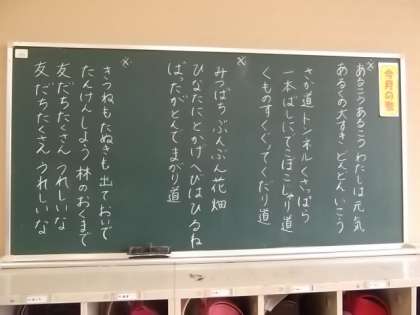 今月の歌
※
あるこうあるこう わたしは元気
あるくの大すき どんどん いこう
さか道 トンネル くさっぱら
一本ばしにでこぼこじゃり道
くものすくぐって くだり道
※
みつばち ぶんぶん 花畑
ひなたにとかげ へびはひるね
ばったがとんで まがり道
※
きつねもたぬきも出ておいで
たんけんしよう 林のおくまで
友だちたくさん うれしいな
友だちたくさん うれしいな